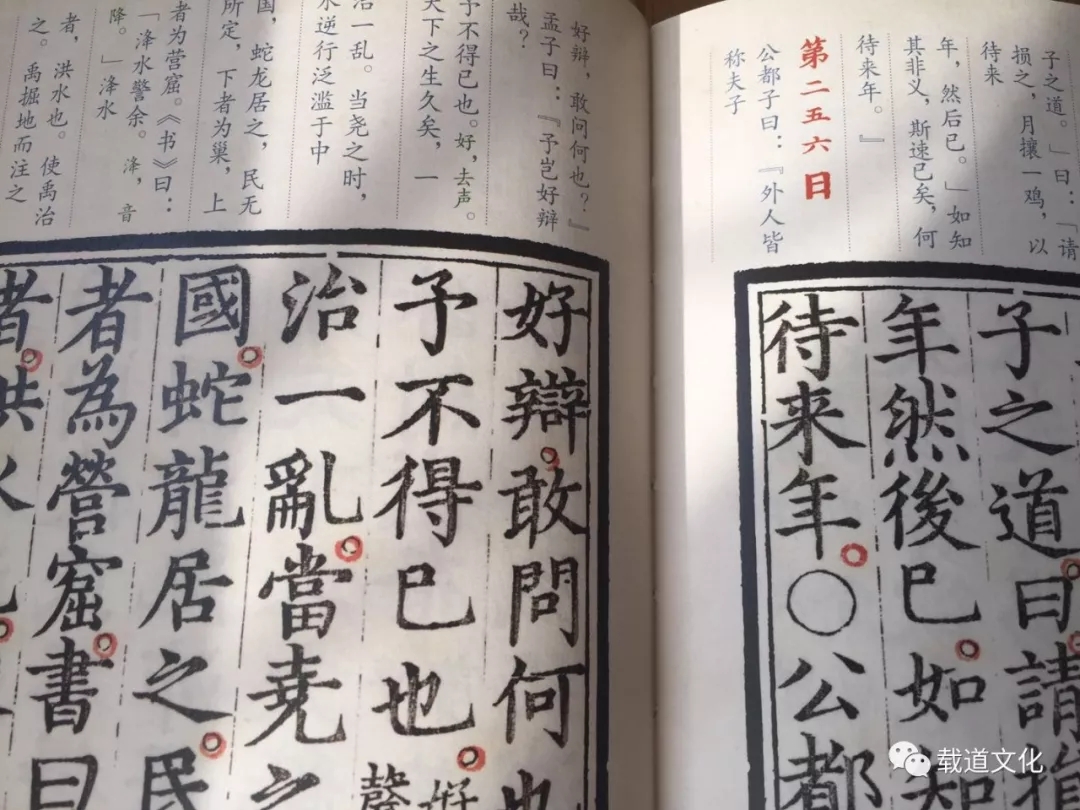 子之道。」曰：「请
损之，月攘一鸡，以
待来
年，然后已。」如知
其非义，斯速已矣，何
待来年。』
第二五六日
公都子曰：『外人皆
称夫子
子之道。曰請
年然後已。如知
待来年。○公都
好辩，敢问何也？』
孟子曰：『予岂好辩
哉？
予不得已也。好，去声。
天下之生久矣，一
治一乱。当尧之时，
水逆行泛滥于中
国，蛇龙居之，民无
所定，下者为巢，上
者为营窟。《书》曰：
「洚水警余。洚，音
降。」洚水
者，洪水也。使禹治
之。禹掘地而注之
好辯。敢問何也
予不得已也。好
聲
治一亂。當堯之
國。蛇龍居之。民
者為營窟。書曰
者。洪水
载道文化